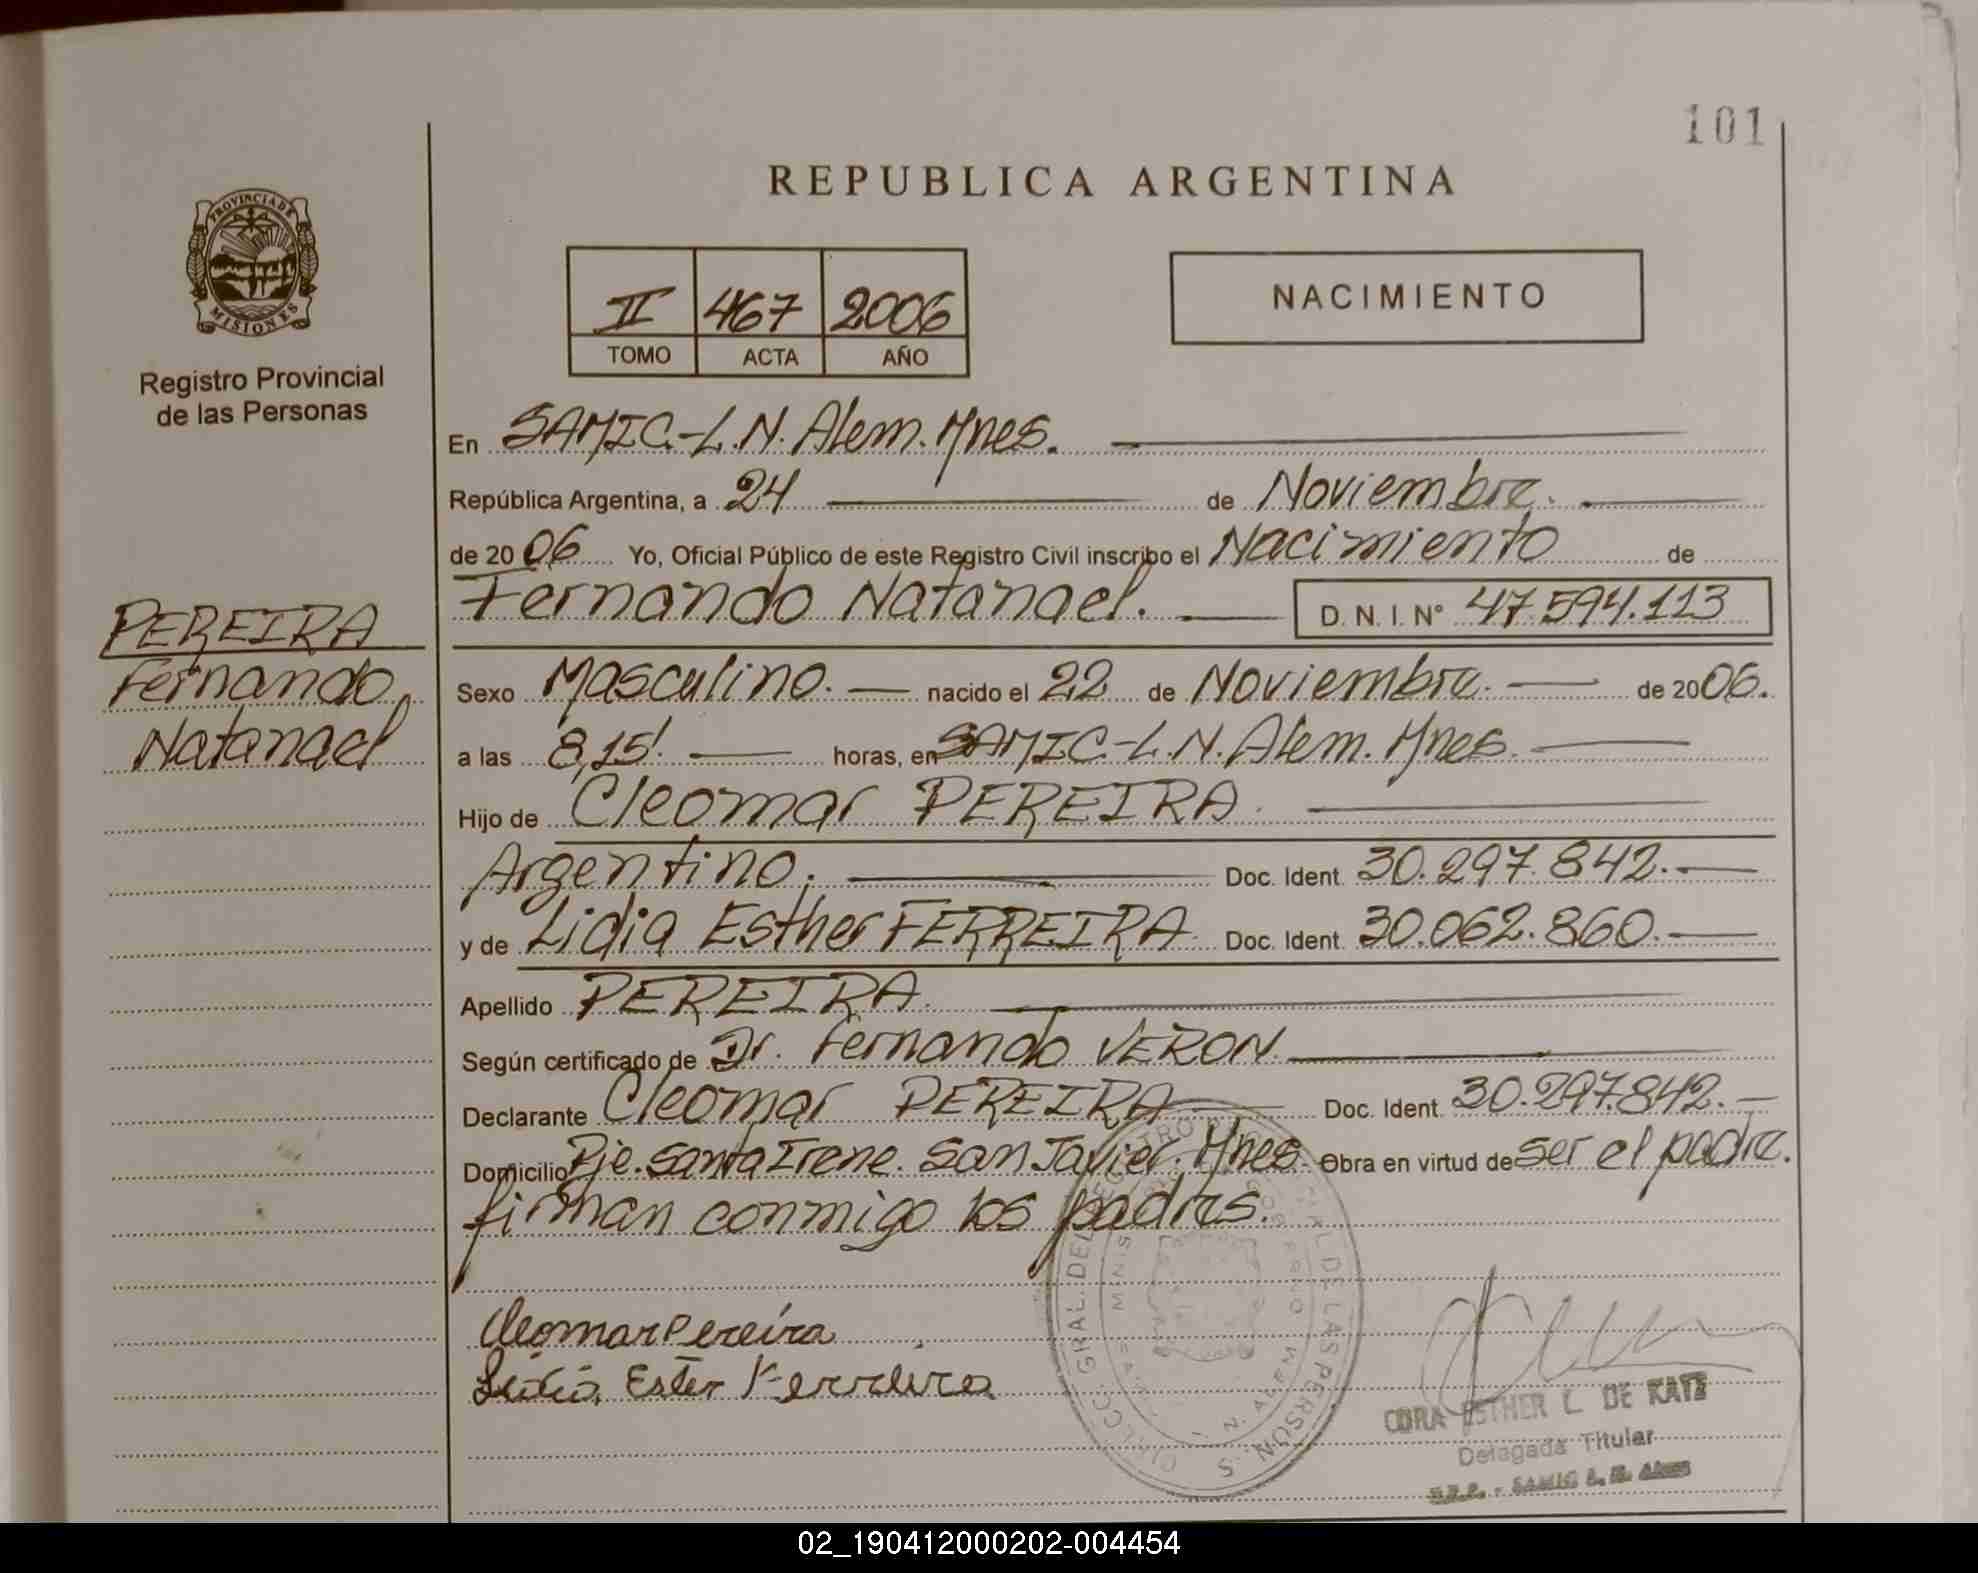 101
REPUBLICA ARGENTINA
PROVINCIA DE
MISIONES
Registro Provincial
de las Personas
II 467 2006
TOMO ACTA AÑO
NACIMIENTO
En SAMIC.-L.N. Alem. Mnes.
República Argentina, a 24 de Noviembre.
de 2006 Yo, Oficial Público de este Registro Civil inscribo el Nacimiento de
Fernando Natanael. D. N. I. N° 47.594.113
PEREIRA
Fernando
Natanael
Sexo Masculino. nacido el 22 de Noviembre. de 2006.
a las 8,15'. horas, en SAMIC-L.N. Alem. Mnes.
Hijo de Cleomar PEREIRA.
Argentino. Doc. Ident. 30.297.842.
y de Lidia Esther FERREIRA Doc. Ident. 30.062.860.
Apellido PEREIRA.
Según certificado de Dr. Fernando VERON.
Declarante Cleomar PEREIRA Doc. Ident. 30.297.842.
Domicilio Pje. Santa Irene. San Javier. Mnes. Obra en virtud de ser el padre.
firman conmigo los padres.
Cleomar Pereira
Lidia Ester Ferreira
CORA ESTHER L. DE KATZ
Delegada Titular
R.P.P. - SAMIC L. N. Alem
02_190412000202-004454